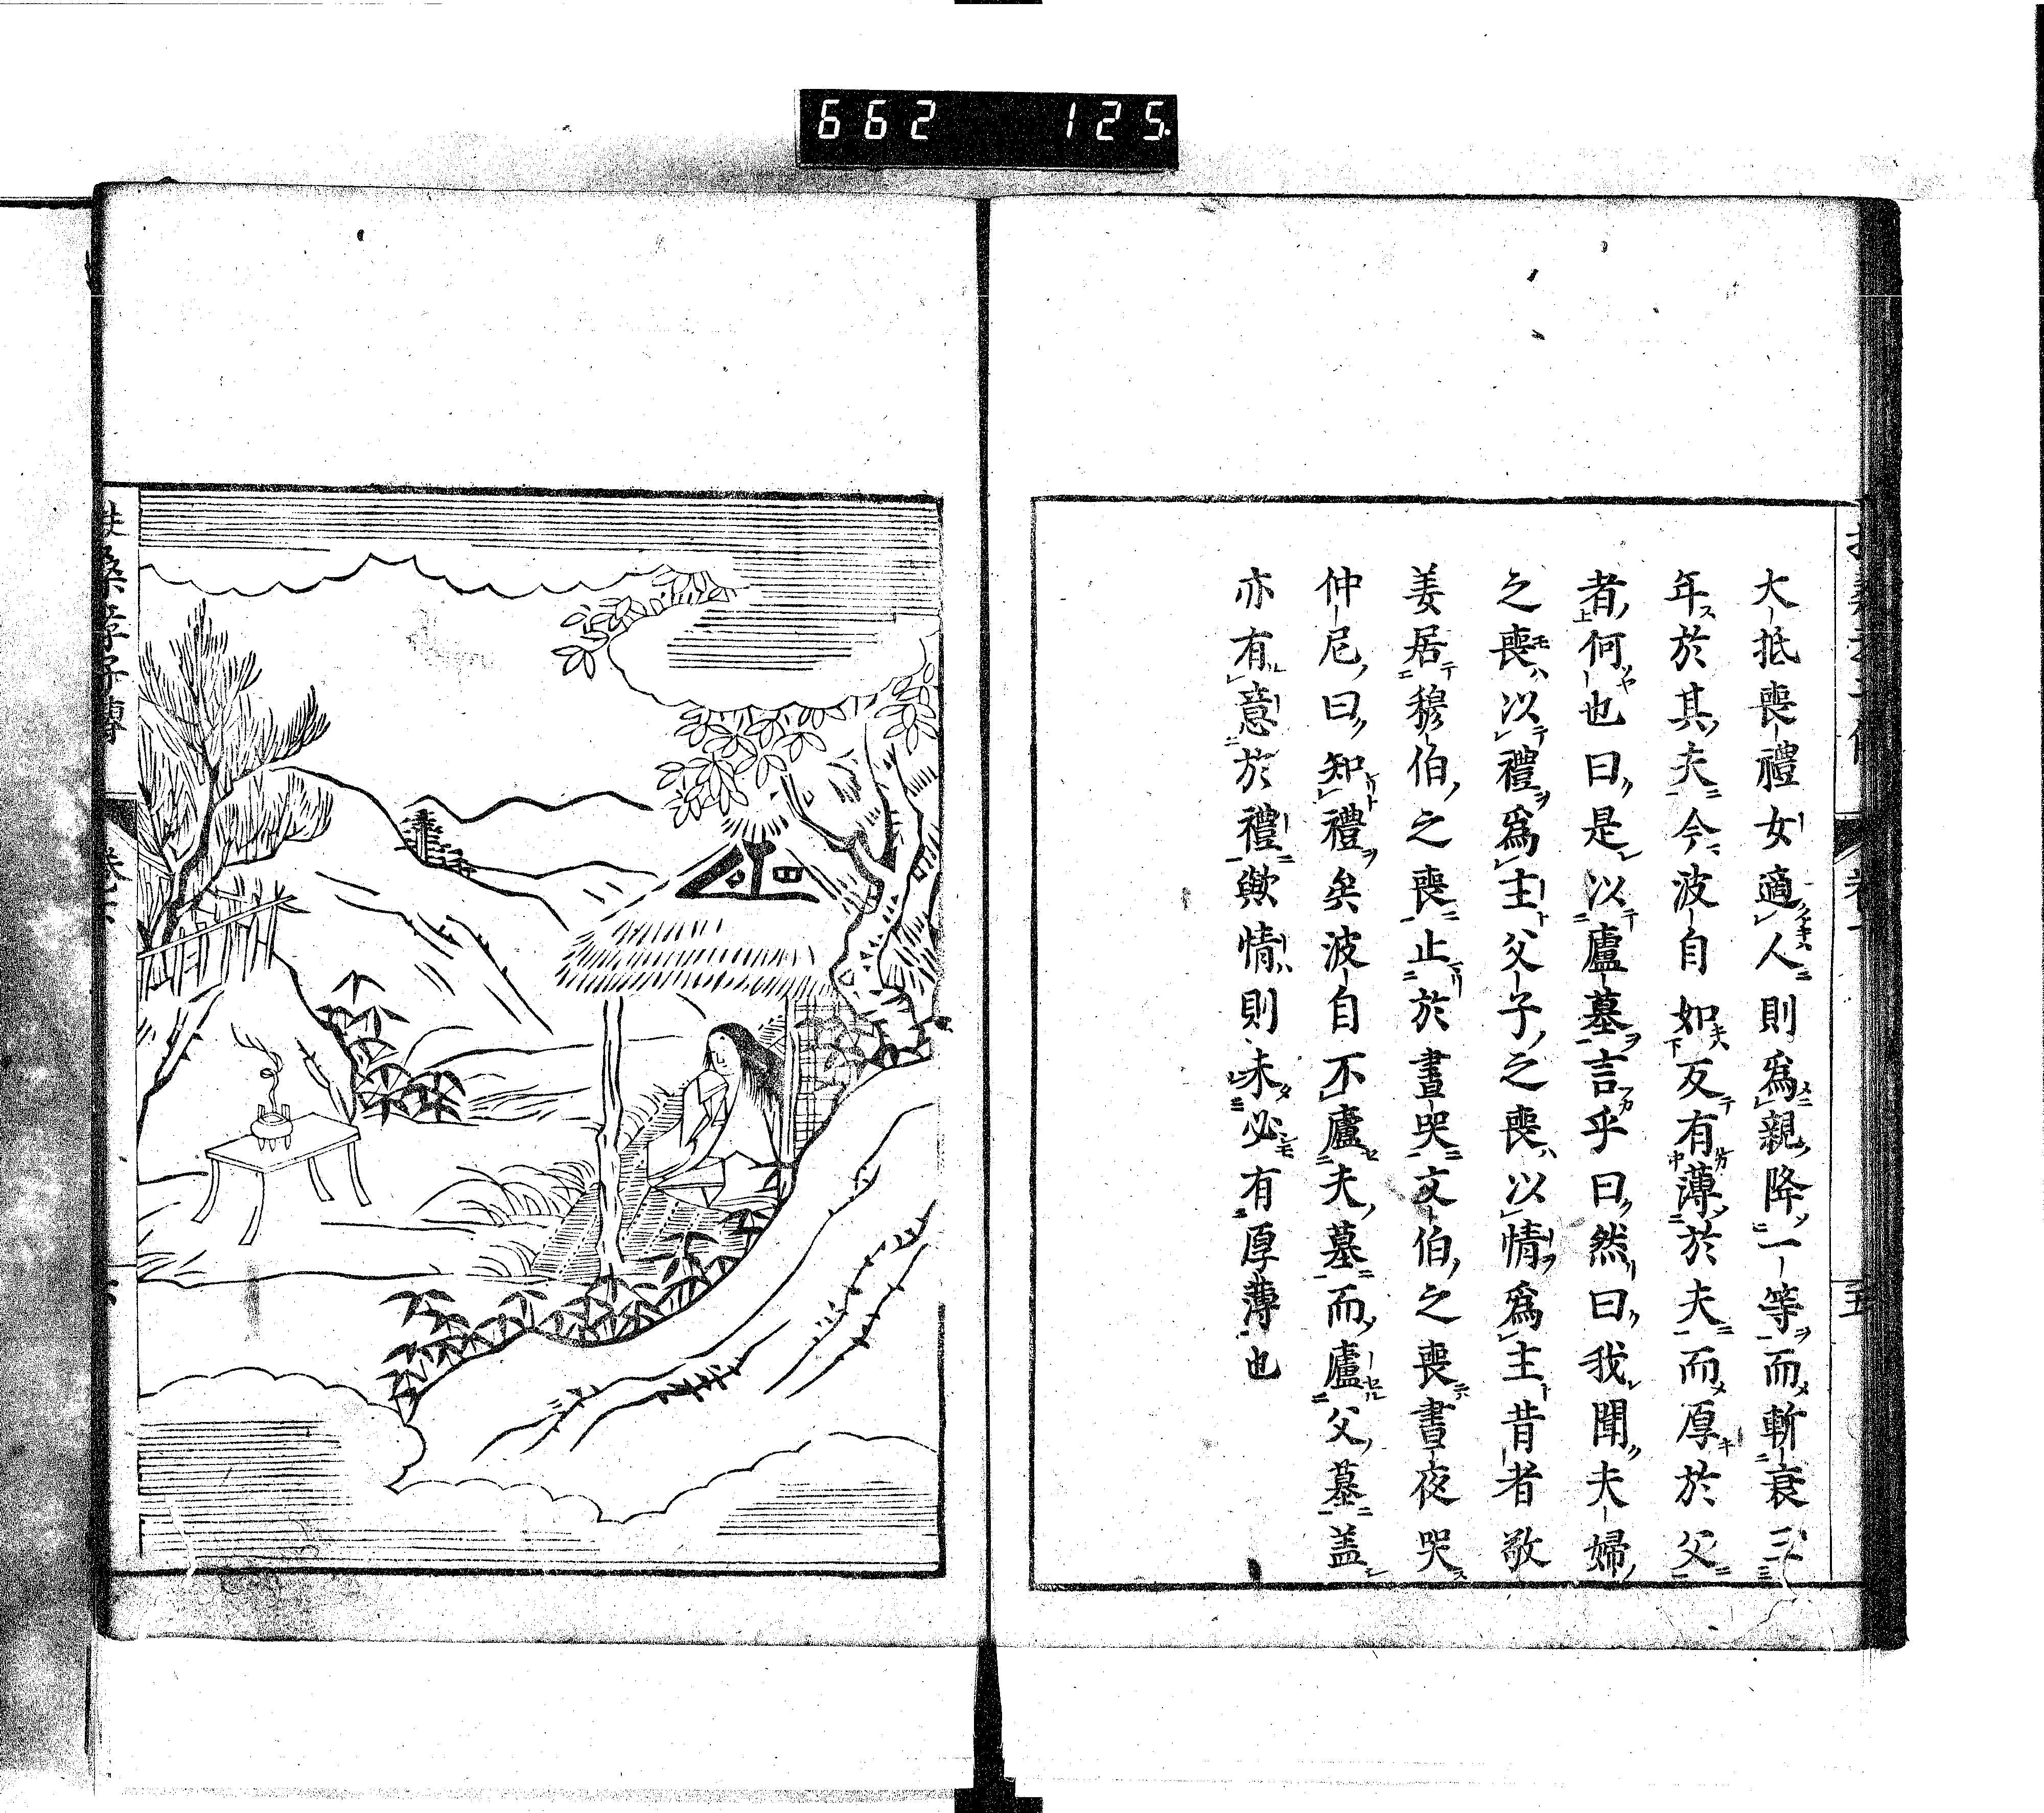 662 125
大抵喪禮女適人則爲親降一等而斬衰三
年於其夫今波自如反有薄於夫而厚於父
者何也曰是以廬墓言乎曰然曰我聞夫婦
之喪以禮爲主父子之喪以情爲主昔者敬
姜居穆伯之喪止於晝哭文伯之喪晝夜哭
仲尼曰知禮矣波自不廬夫墓而廬父墓盖
亦有意於禮歟情則未必有厚薄也
五
扶桑孝子傳